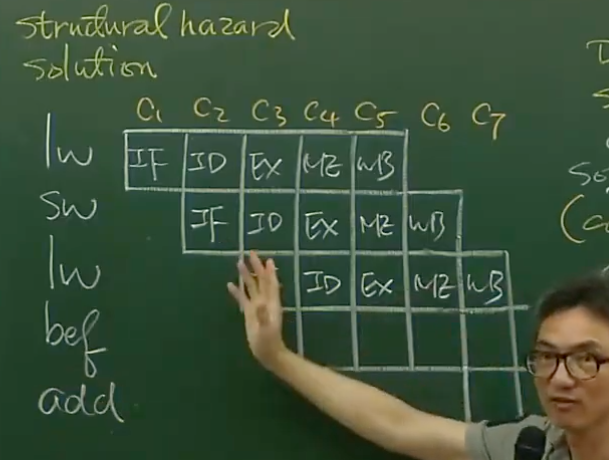 structural hazard
solution
C1 C2 C3 C4 C5 C6 C7
lw IF ID EX ME WB
sw IF ID EX ME WB
lw ID EX ME WB
bef
add